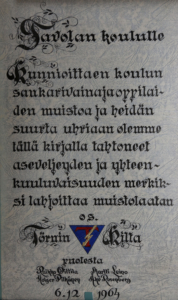 Savolan koululle
Kunnioittaen koulun
sankarivainajaoppilai-
den muistoa ja heidän
suurta uhriaan olemme
tällä kirjalla tahtoneet
aseveljeyden ja yhteen-
kuuluvaisuuden merkik-
si lahjoittaa muistolaatan
o.s.
Törnin Kilta
puolesta
6.12 1964